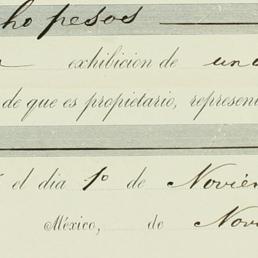 ho pesos
exhibicion de un
de que es propietario, represen
el dia 1º de Novie
México, de Nov